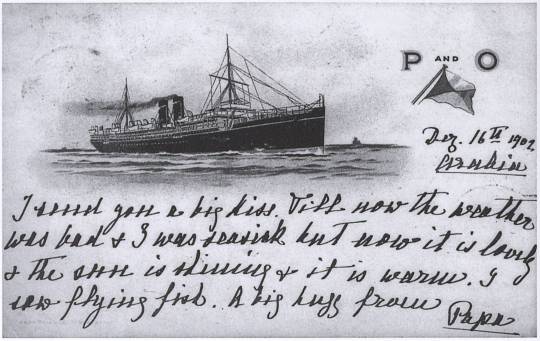 P AND O
Dez. 16th 1902
Arabia
I send you a big kiss. Till now the weather
was bad & I was seasick but now it is lovely
& the sun is shining & it is warm. I
saw flying fish. A big hugg from
Papa